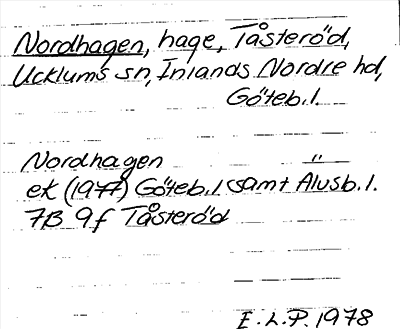 Nordhagen, hage, Tåsteröd,
Ucklums sn, Inlands Nordre hd,
Göteb.l.
Nordhagen "
ek (1977) Göteb.l samt Älvsb.l.
7B 9f Tåsteröd
E.L.P. 1978